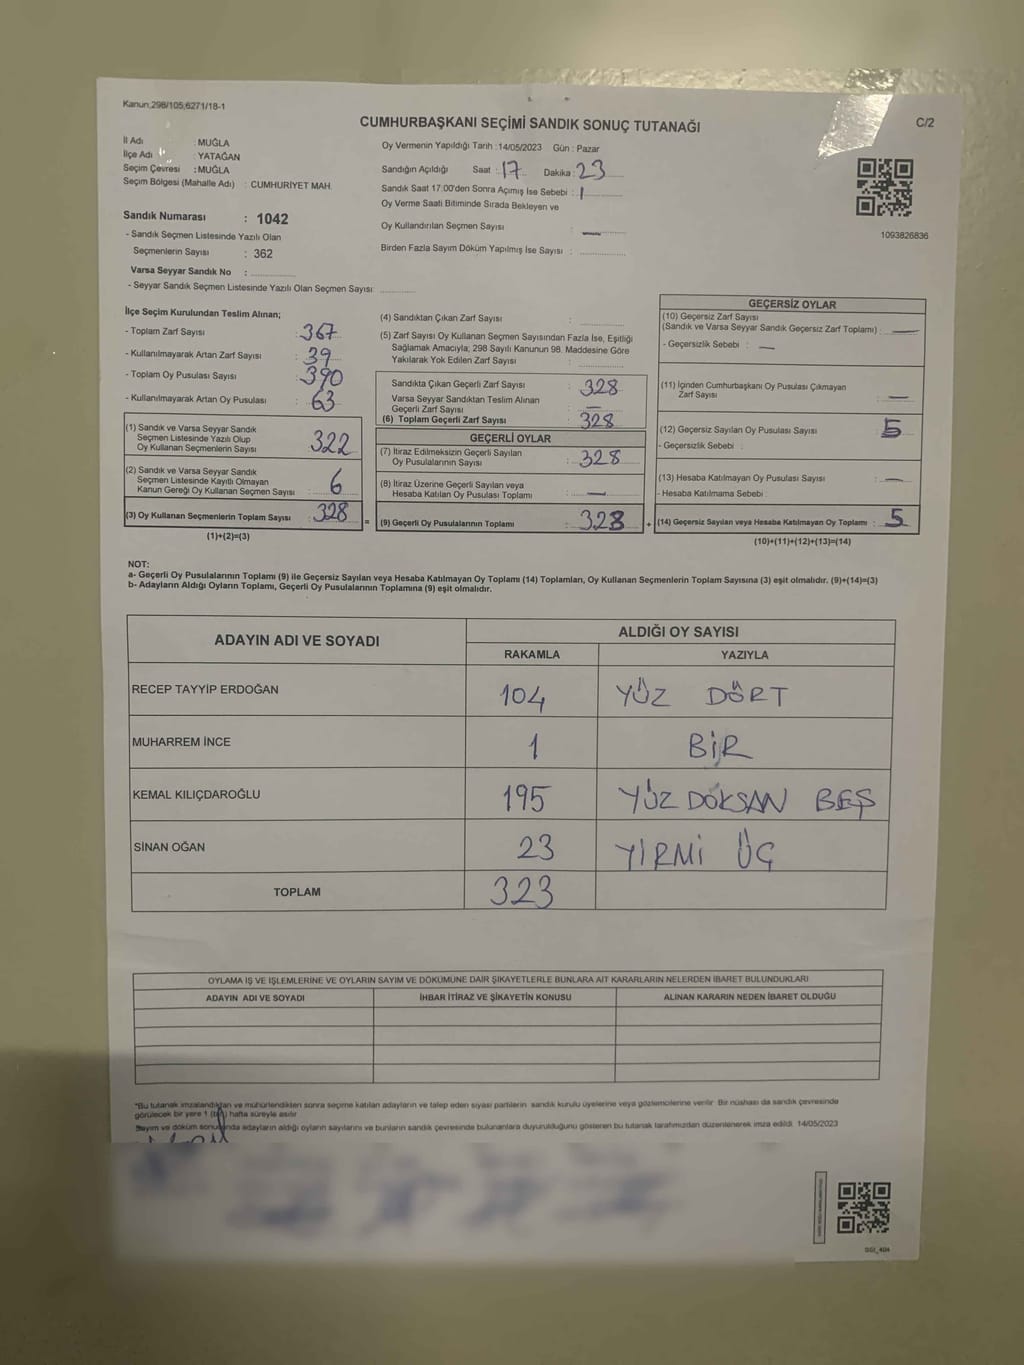 Kanun;298/105;6271/18-1
CUMHURBAŞKANI SEÇİMİ SANDIK SONUÇ TUTANAĞI
C/2
İl Adı : MUĞLA
İlçe Adı : YATAĞAN
Seçim Çevresi : MUĞLA
Seçim Bölgesi (Mahalle Adı) : CUMHURİYET MAH.
Sandık Numarası : 1042
- Sandık Seçmen Listesinde Yazılı Olan
Seçmenlerin Sayısı : 362
Varsa Seyyar Sandık No :
- Seyyar Sandık Seçmen Listesinde Yazılı Olan Seçmen Sayısı:
Oy Vermenin Yapıldığı Tarih :14/05/2023 Gün : Pazar
Sandığın Açıldığı Saat : 17 Dakika : 23
Sandık Saat 17:00'den Sonra Açımış İse Sebebi :
Oy Verme Saati Bitiminde Sırada Bekleyen ve
Oy Kullandırılan Seçmen Sayısı :
Birden Fazla Sayım Döküm Yapılmış İse Sayısı :
1093826836
İlçe Seçim Kurulundan Teslim Alınan;
- Toplam Zarf Sayısı : 367
- Kullanılmayarak Artan Zarf Sayısı : 39
- Toplam Oy Pusulası Sayısı : 390
- Kullanılmayarak Artan Oy Pusulası : 63
(1) Sandık ve Varsa Seyyar Sandık
Seçmen Listesinde Yazılı Olup
Oy Kullanan Seçmenlerin Sayısı 322
(2) Sandık ve Varsa Seyyar Sandık
Seçmen Listesinde Kayıtlı Olmayan
Kanun Gereği Oy Kullanan Seçmen Sayısı 6
(3) Oy Kullanan Seçmenlerin Toplam Sayısı : 328
(1)+(2)=(3)
(4) Sandıktan Çıkan Zarf Sayısı :
(5) Zarf Sayısı Oy Kullanan Seçmen Sayısından Fazla İse, Eşitliği
Sağlamak Amacıyla; 298 Sayılı Kanunun 98. Maddesine Göre
Yakılarak Yok Edilen Zarf Sayısı :
Sandıkta Çıkan Geçerli Zarf Sayısı : 328
Varsa Seyyar Sandıktan Teslim Alınan
Geçerli Zarf Sayısı : —
(6) Toplam Geçerli Zarf Sayısı : 328
GEÇERLİ OYLAR
(7) İtiraz Edilmeksizin Geçerli Sayılan
Oy Pusulalarının Sayısı : 328
(8) İtiraz Üzerine Geçerli Sayılan veya
Hesaba Katılan Oy Pusulası Toplamı : —
= (9) Geçerli Oy Pusulalarının Toplamı : 323
GEÇERSİZ OYLAR
(10) Geçersiz Zarf Sayısı
(Sandık ve Varsa Seyyar Sandık Geçersiz Zarf Toplamı) : —
- Geçersizlik Sebebi : —
(11) İçinden Cumhurbaşkanı Oy Pusulası Çıkmayan
Zarf Sayısı : —
(12) Geçersiz Sayılan Oy Pusulası Sayısı : 5
- Geçersizlik Sebebi :
(13) Hesaba Katılmayan Oy Pusulası Sayısı : —
- Hesaba Katılmama Sebebi :
+ (14) Geçersiz Sayılan veya Hesaba Katılmayan Oy Toplamı : 5
(10)+(11)+(12)+(13)=(14)
NOT:
a- Geçerli Oy Pusulalarının Toplamı (9) ile Geçersiz Sayılan veya Hesaba Katılmayan Oy Toplamı (14) Toplamları, Oy Kullanan Seçmenlerin Toplam Sayısına (3) eşit olmalıdır. (9)+(14)=(3)
b- Adayların Aldığı Oyların Toplamı, Geçerli Oy Pusulalarının Toplamına (9) eşit olmalıdır.
ADAYIN ADI VE SOYADI
ALDIĞI OY SAYISI
RAKAMLA YAZIYLA
RECEP TAYYİP ERDOĞAN 104 YÜZ DÖRT
MUHARREM İNCE 1 BİR
KEMAL KILIÇDAROĞLU 195 YÜZ DOKSAN BEŞ
SİNAN OĞAN 23 YİRMİ ÜÇ
TOPLAM 323
OYLAMA İŞ VE İŞLEMLERİNE VE OYLARIN SAYIM VE DÖKÜMÜNE DAİR ŞİKAYETLERLE BUNLARA AİT KARARLARIN NELERDEN İBARET BULUNDUKLARI
ADAYIN ADI VE SOYADI İHBAR İTİRAZ VE ŞİKAYETİN KONUSU ALINAN KARARIN NEDEN İBARET OLDUĞU
*Bu tutanak imzalandıktan ve mühürlendikten sonra seçime katılan adayların ve talep eden siyasi partilerin sandık kurulu üyelerine veya gözlemcilerine verilir. Bir nüshası da sandık çevresinde
görülecek bir yere 1 (bir) hafta süreyle asılır.
Sayım ve döküm sonucunda adayların aldığı oyların sayılarını ve bunların sandık çevresinde bulunanlara duyurulduğunu gösteren bu tutanak tarafımızdan düzenlenerek imza edildi. 14/05/2023